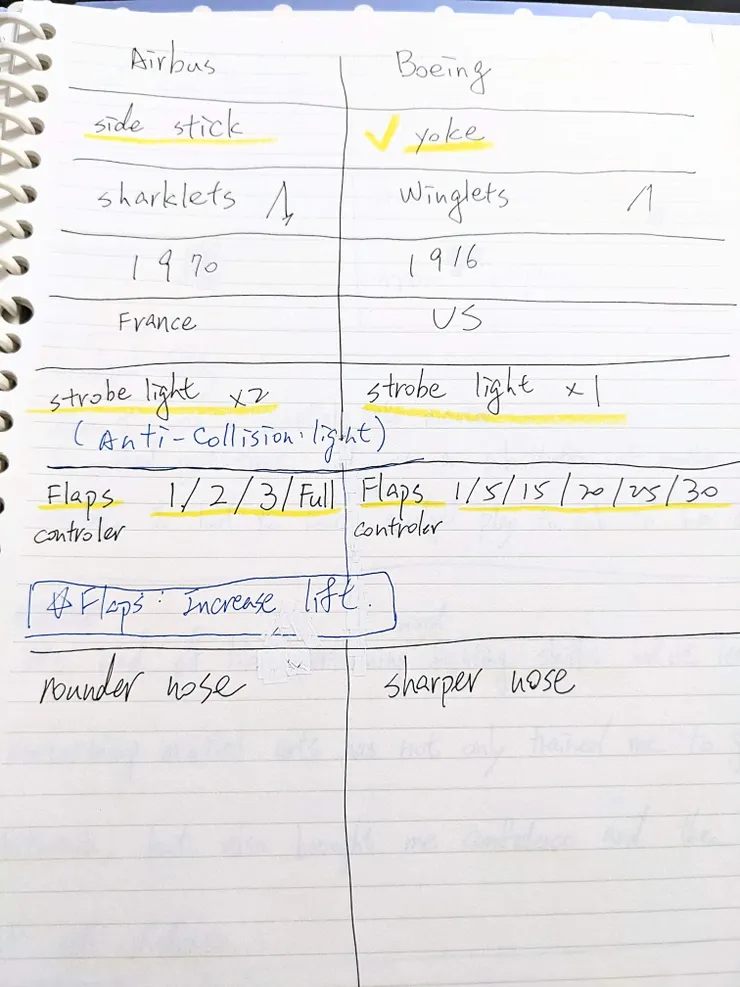 Airbus Boeing
side stick ✓ yoke
sharklets Winglets
1970 1916
France US
strobe light x2 strobe light x1
(Anti-Collision light)
Flaps 1/2/3/Full Flaps 1/5/15/20/25/30
controler controler
☆ Flaps: Increase lift.
rounder nose sharper nose